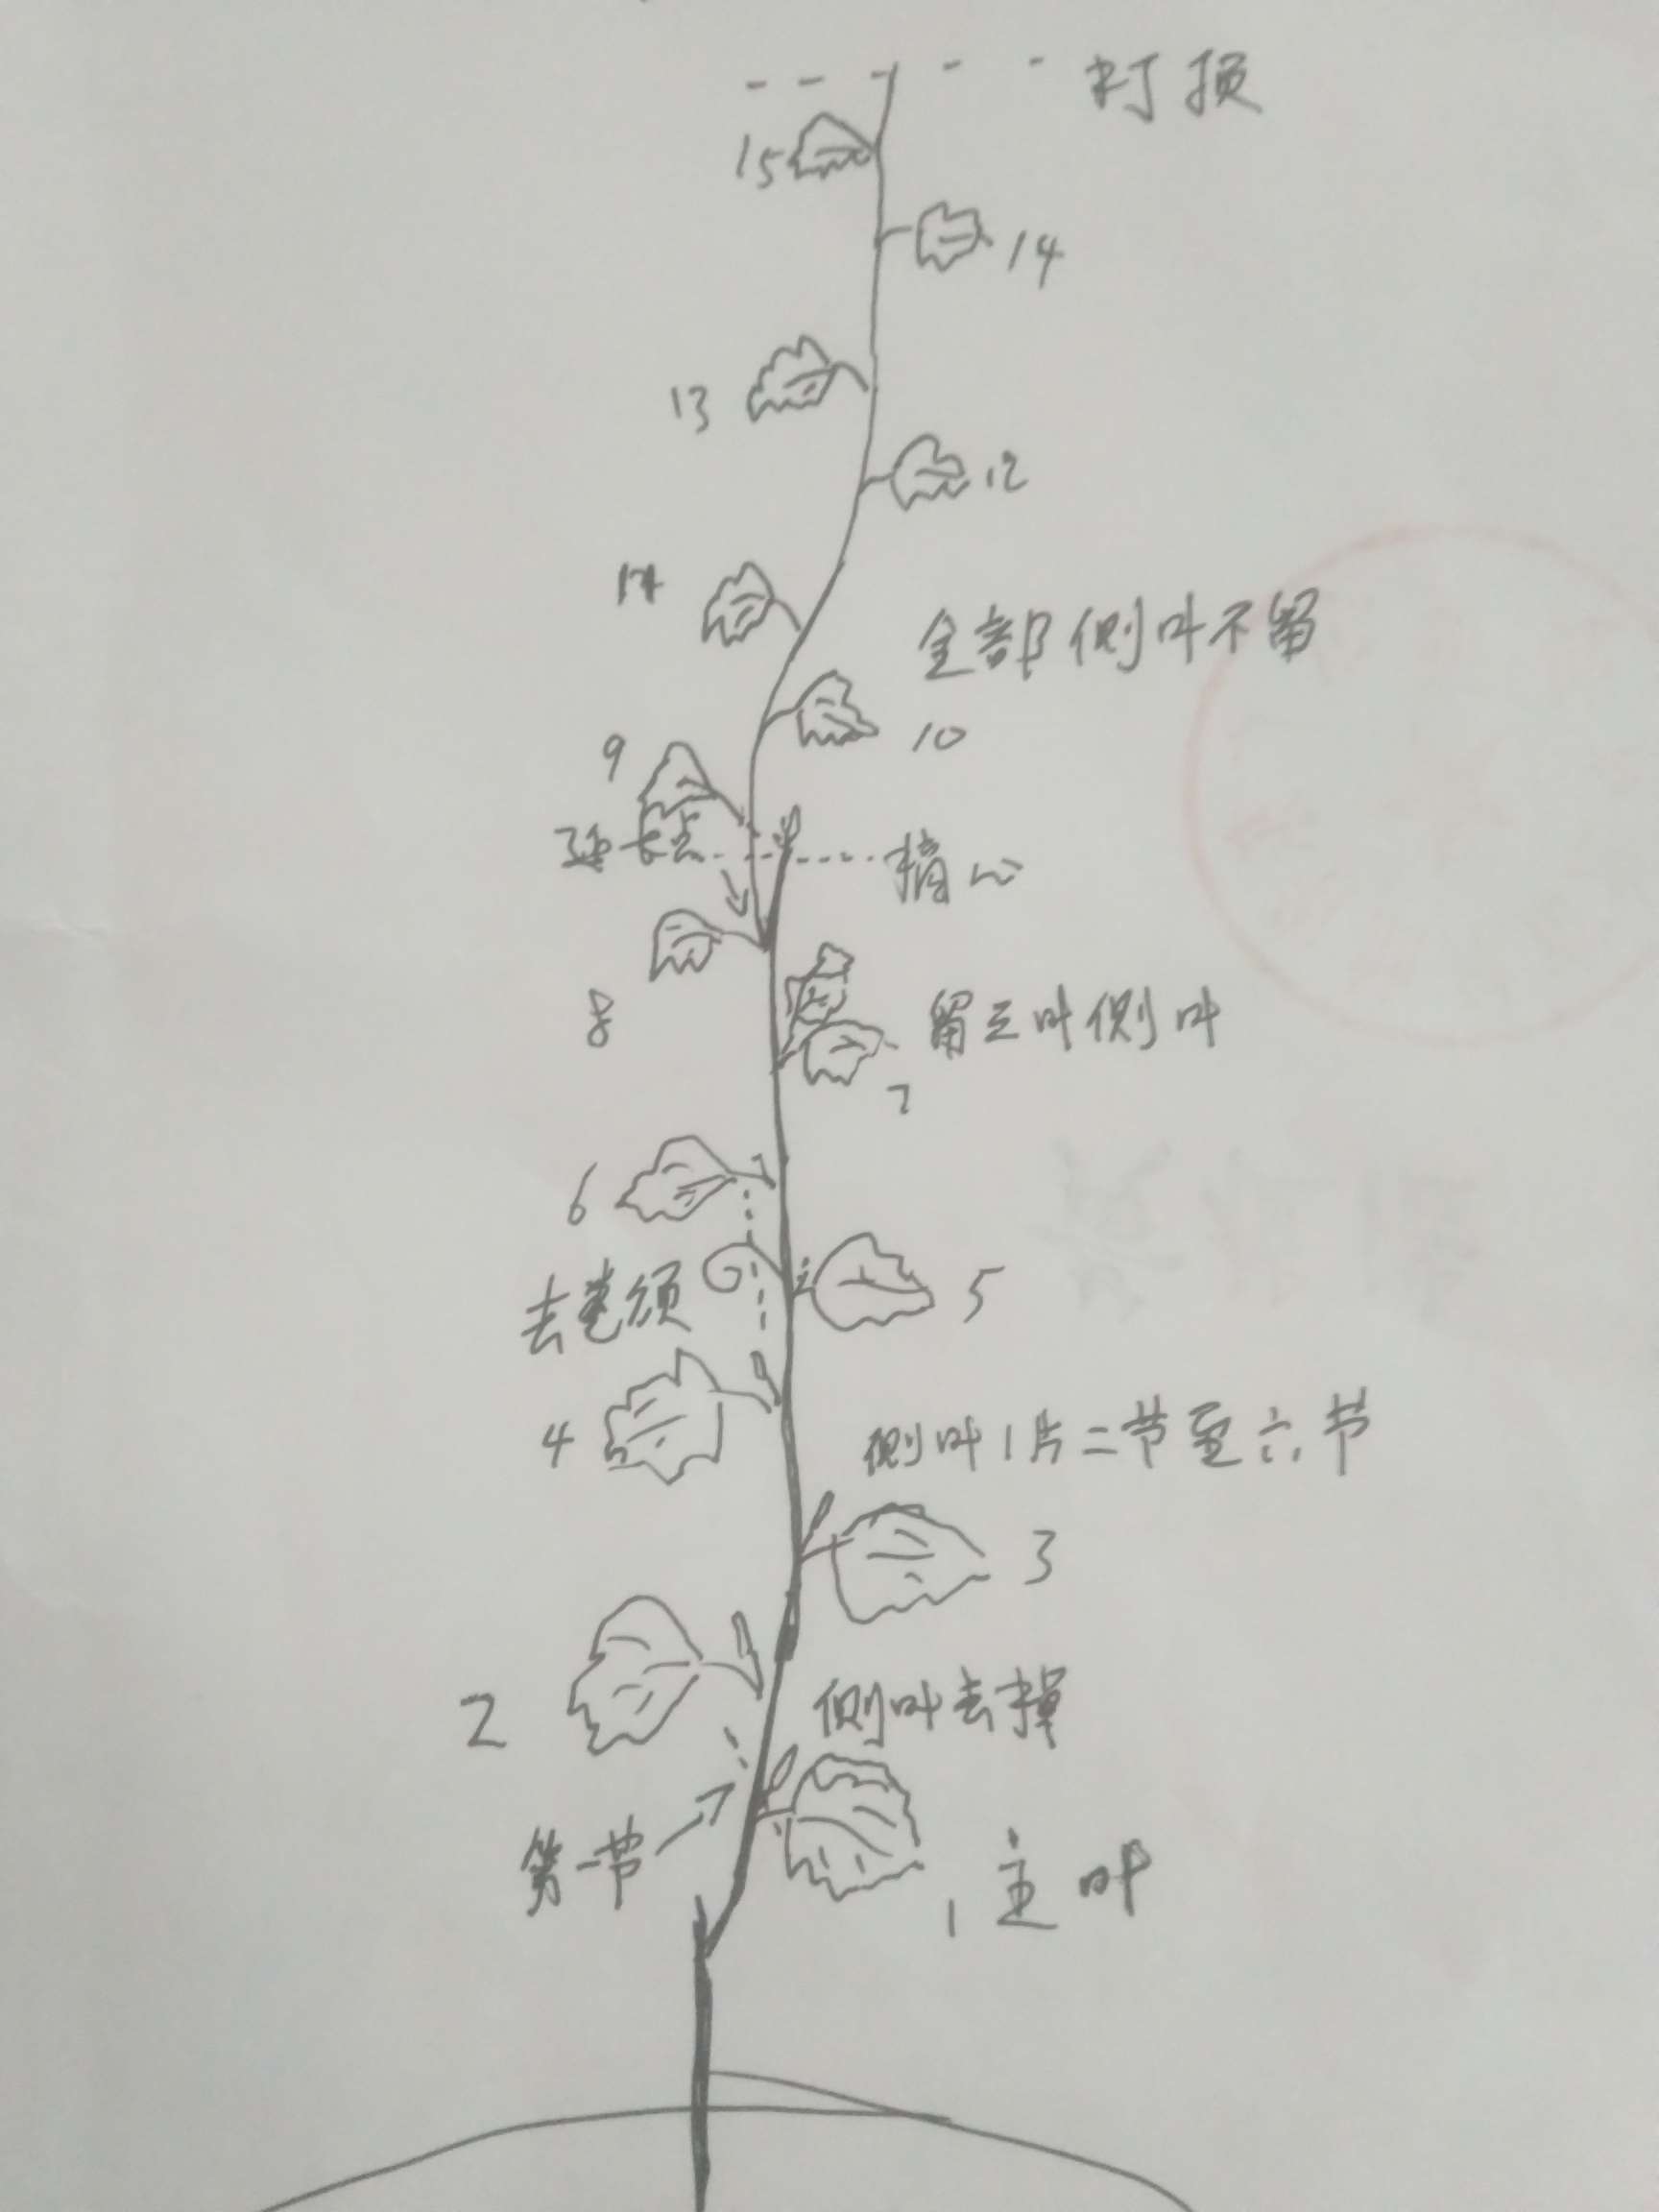 打顶
15
14
13
12
11
全部侧叶不留
10
9
延长点
摘心
8
留三叶侧叶
7
6
去卷须
5
4
侧叶1片二节至六节
3
2
侧叶去掉
第一节
1 主叶